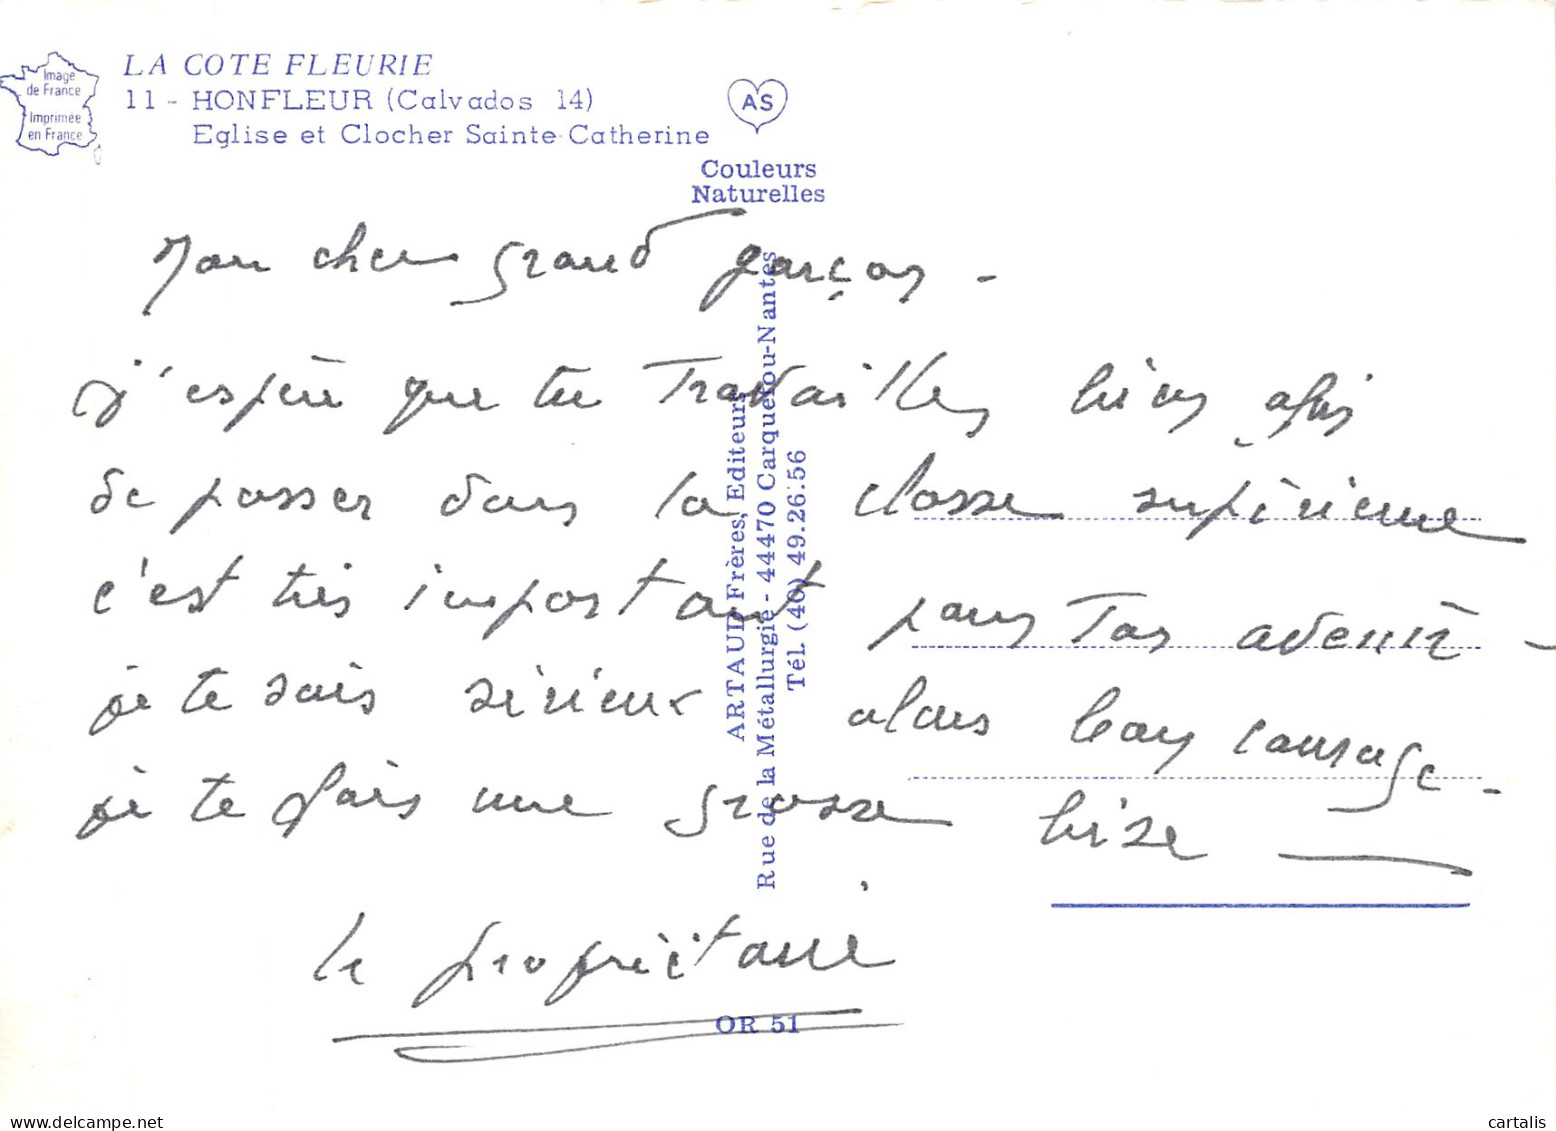 Image
de France
Imprimée
en France
LA COTE FLEURIE
11 - HONFLEUR (Calvados 14)
Eglise et Clocher Sainte-Catherine
AS
Couleurs
Naturelles
Mon cher grand garçon -
j'espère que tu Travailles bien afin
de passer dans la classe supérieure
c'est très important pour Ton avenir -
je te sais sérieux alors bon courage -
je te fais une grosse bise
le propriétaire
ARTAUD Frères, Editeurs
Rue de la Métallurgie - 44470 Carquefou-Nantes
Tél. (40) 49.26.56
OR 51
www.delcampe.net
cartalis